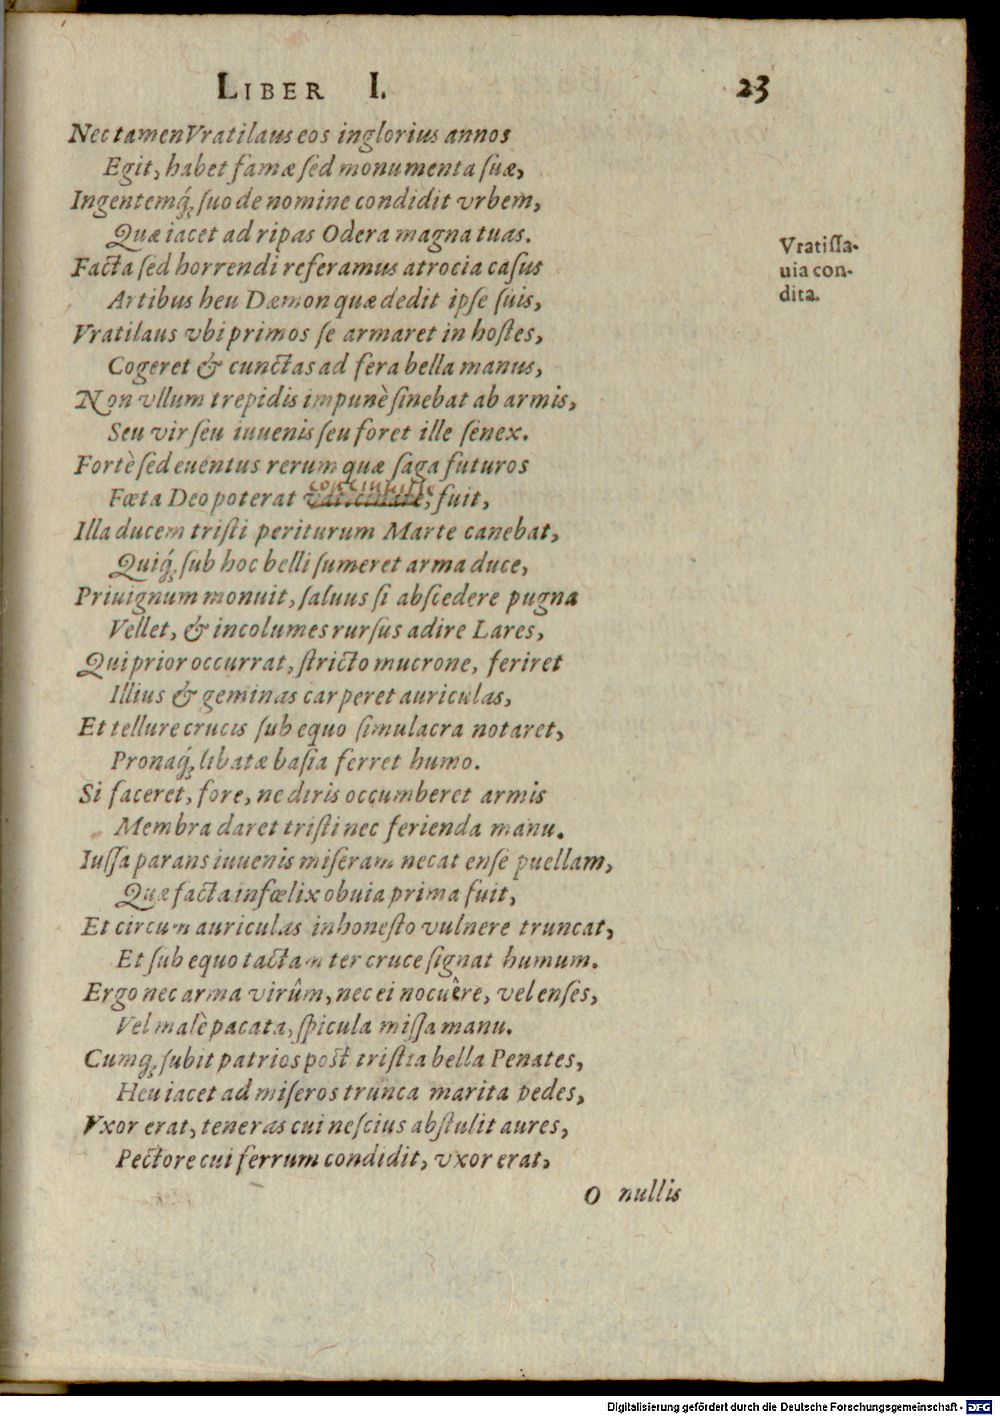 LIBER I. 23
Nec tamen Vratilaus eos inglorius annos
Egit, habet famæ sed monumenta suæ,
Ingentemq́; suo de nomine condidit vrbem,
Quæ iacet ad ripas Odera magna tuas.
Vratissa-
uia con-
dita.
Facta sed horrendi referamus atrocia casus
Artibus heu Dæmon quæ dedit ipse suis,
Vratilaus vbi primos se armaret in hostes,
Cogeret & cunctas ad fera bella manus,
Non vllum trepidis impunè sinebat ab armis,
Seu vir seu iuuenis seu foret ille senex.
Fortè sed euentus rerum quæ saga futuros
concinuisse
Fœta Deo poterat vaticinare, fuit,
Illa ducem tristi periturum Marte canebat,
Quiq́; sub hoc belli sumeret arma duce,
Priuignum monuit, saluus si abscedere pugna
Vellet, & incolumes rursus adire Lares,
Qui prior occurrat, stricto mucrone, feriret
Illius & geminas carperet auriculas,
Et tellure crucis sub equo simulacra notaret,
Pronaq́; libatæ basia ferret humo.
Si faceret, fore, ne diris occumberet armis
Membra daret tristi nec ferienda manu.
Iussa parans iuuenis miseram necat ense puellam,
Quæ facta infœlix obuia prima fuit,
Et circum auriculas inhonesto vulnere truncat,
Et sub equo tactam ter cruce signat humum.
Ergo nec arma virûm, nec ei nocuêre, vel enses,
Vel malè pacata, spicula missa manu.
Cumq; subit patrios post tristia bella Penates,
Heu iacet ad miseros trunca marita pedes,
Vxor erat, teneras cui nescius abstulit aures,
Pectore cui ferrum condidit, vxor erat,
O nullis
Digitalisierung gefördert durch die Deutsche Forschungsgemeinschaft - DFG